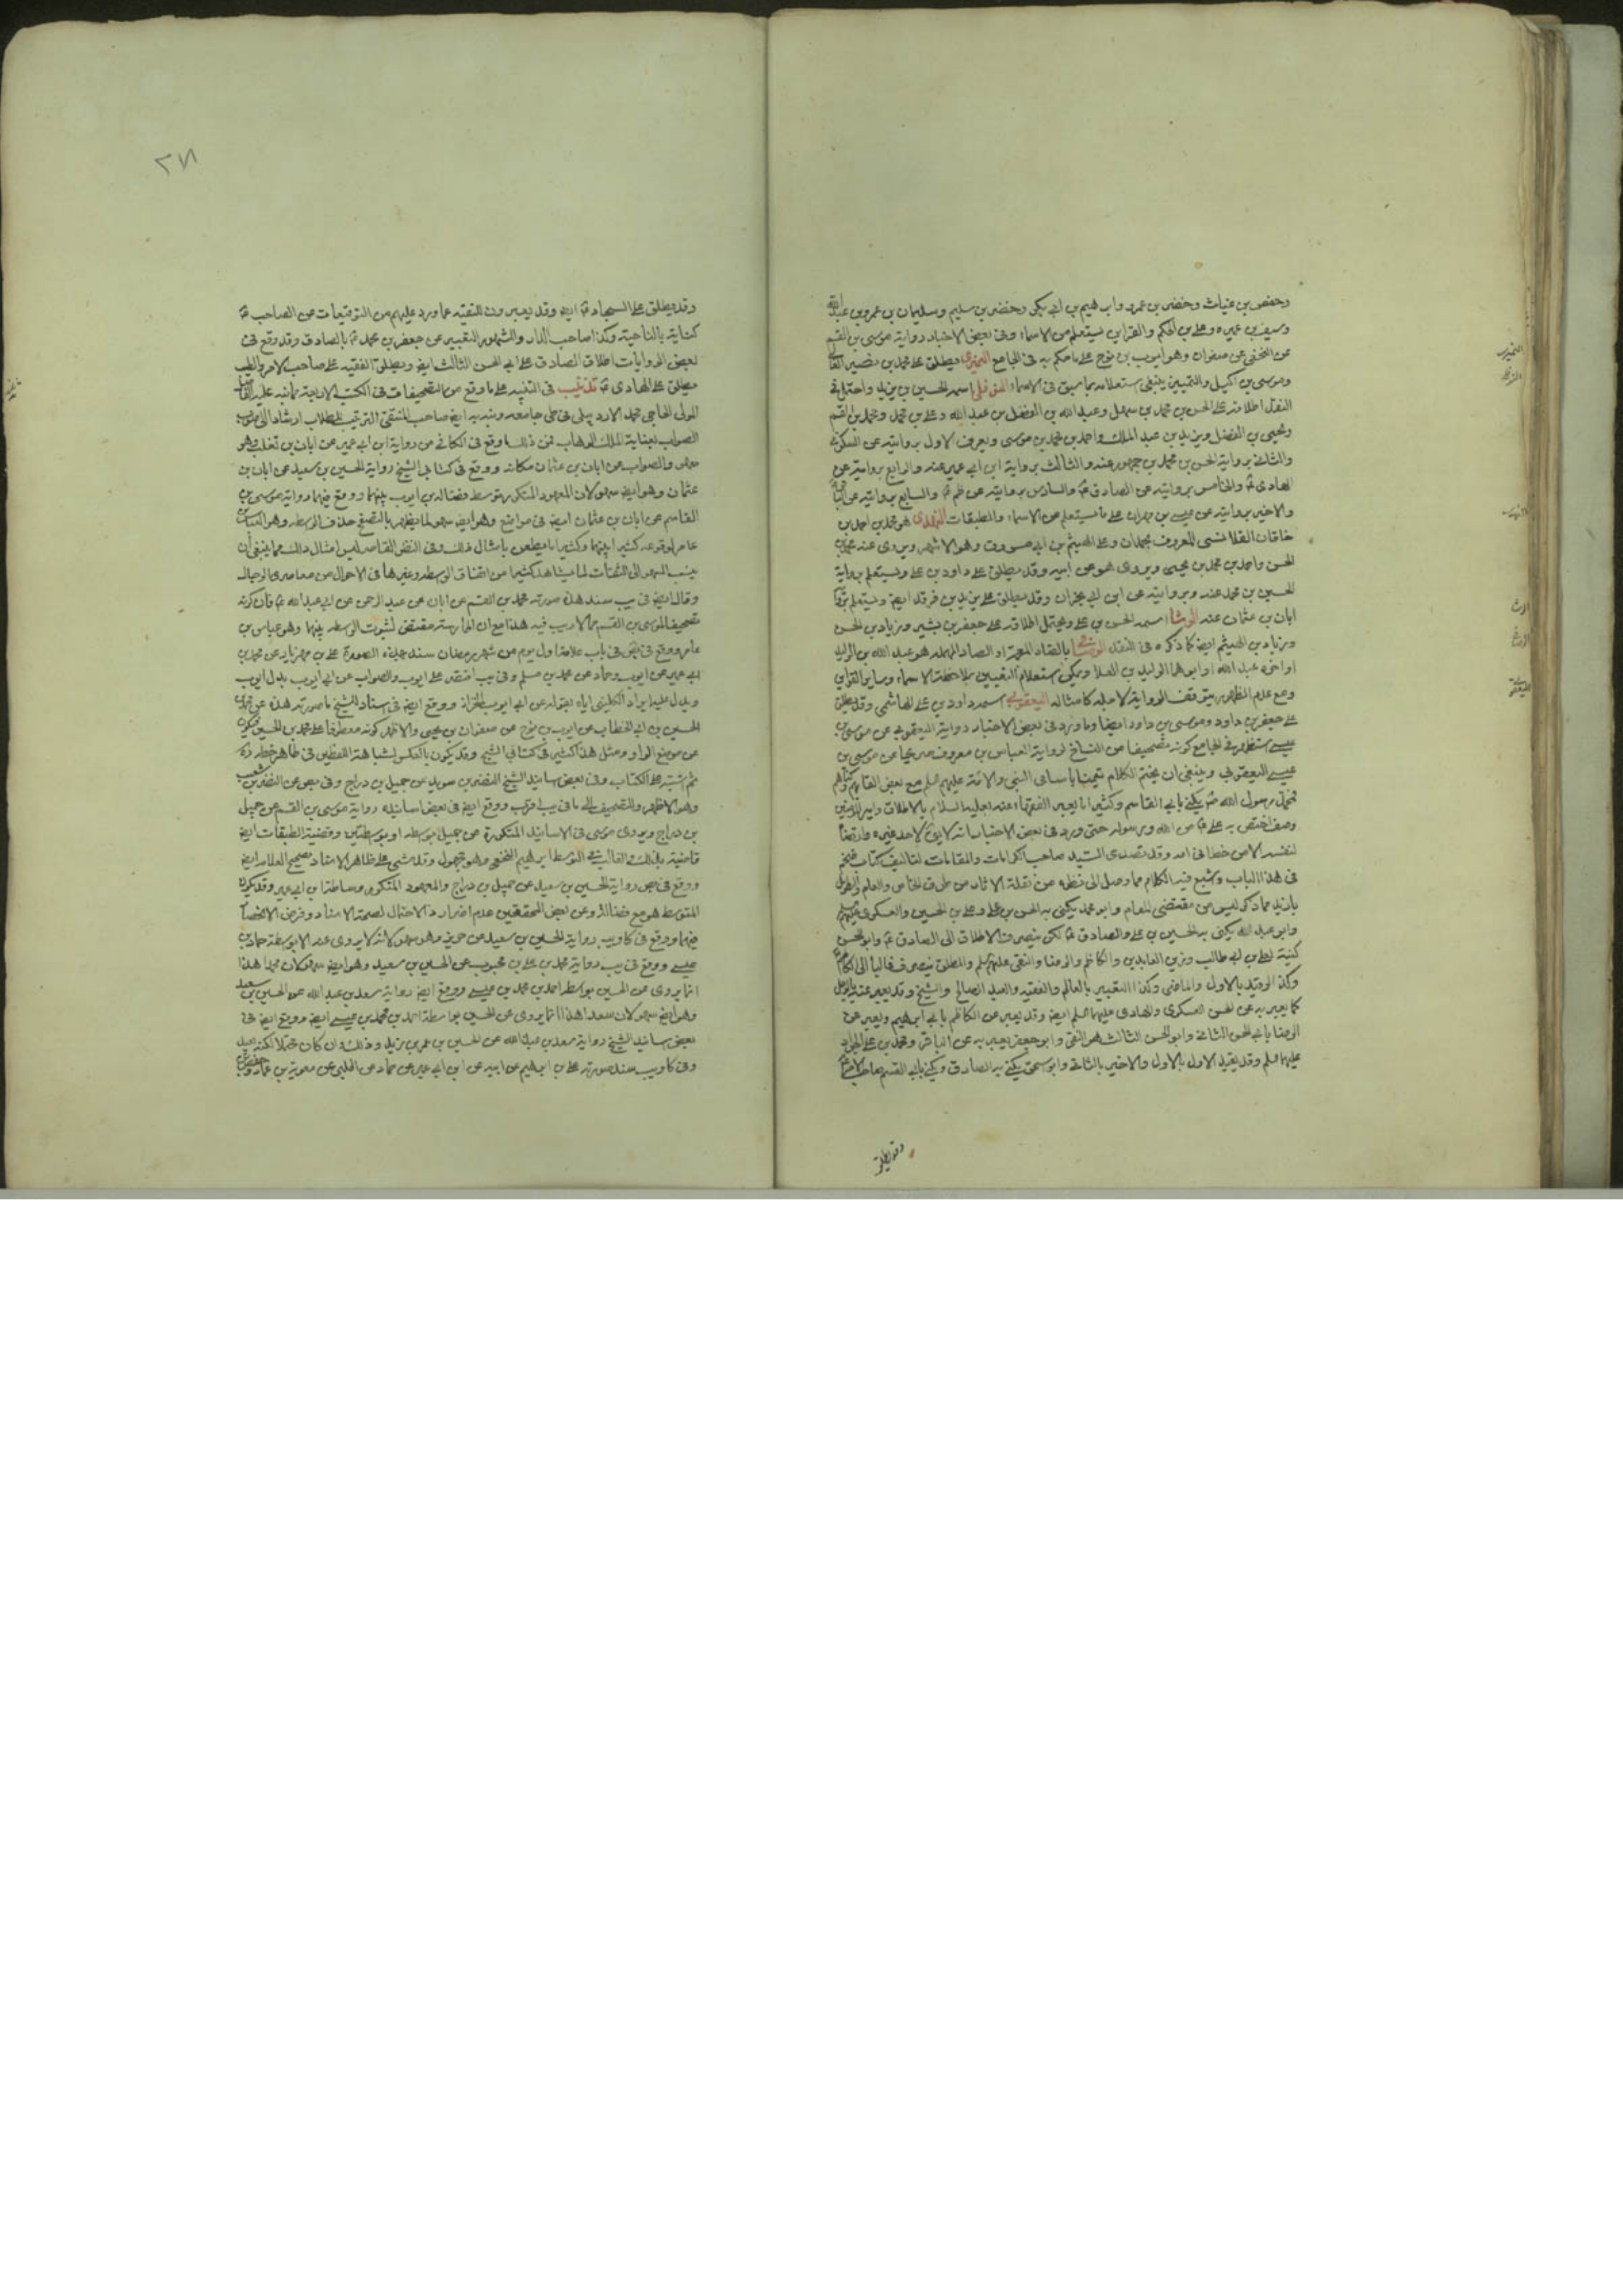 وحفص بن غياث وخضر بن عمرو وابرهيم بن ابي بكر وخضر بن سليم وسليمان بن عمرو بن عبد الله
وسيف بن عميره وعلي بن الحكم والقراين يستعلم من الاسماء وفي بعض الاخبار رواية موسى بن القسم
عن النخعي عن صفوان وهو ايوب بن نوح على ما حكم به في الجامع النميري يطلق على محمد بن نصير
وموسى بن اكيل والتميز ينبغي استعلامه بما سبق في الاسماء النوفلي اسمه الحسين بن يزيد واحتمل في
النقد اطلاقه على الحسن بن محمد بن سهل وعبد الله بن الفضل بن عبد الله وعلى بن محمد ومحمد بن القسم
ويحيى بن الفضل ويزيد بن عبد الملك واحمد بن محمد بن موسى ويعرف الاول بروايته عن السكوني
والثاني برواية الحسن بن محمد بن جمهور عنه والثالث برواية ابن ابي عمير عنه والرابع بروايته عن
الهادي والخامس بروايته عن الصادق والسادس بروايته عن والسابع بروايته عن
والاخير بروايته عن عيسى بن مهران على ما يستعلم من الاسماء والطبقات النهدي هو محمد بن احمد بن
خاقان القلانسي المعروف بحمدان وعلى الهيثم بن ابي مسروق وهو الاشهر ويروى عنه محمد بن
الحسن واحمد بن محمد بن يحيى ويروى هو عن ابيه وقد يطلق على داود بن علي ويستعلم برواية
الحسين بن محمد عنه وبروايته عن ابن ابي نجران وقد يطلق على يزيد بن فرقد ايضا ويستعلم
ابان بن عثمان عنه الوشا اسمه الحسن بن علي ويحتمل اطلاقه على جعفر بن بشير وزياد بن الحسن
وزياد بن الهيثم ايضا كما ذكره في النقد الوصافي بالضاد المعجمة او الصاد المهملة هو عبد الله بن الوليد
او اخوه عبد الله او ابوهما الوليد بن العلا ويمكن استعلام التعيين بملاحظة الاسماء وساير القراين
ومع عدم الظهور يتوقف الرواية لاجله كامثاله اليعقوبي اسمه داود بن علي الهاشمي وقد يطلق
على جعفر بن داود وموسى بن داود ايضا وما ورد في بعض الاخبار رواية اليعقوبي عن موسى بن
عيسى استظهر في الجامع كونه تصحيفا من النساخ لرواية العباس بن معروف صريحا عن موسى بن
عيسى اليعقوبي وينبغي ان يختم الكلام تيمنا باسامي النبي والائمة عليهم السلام مع بعض القابهم وكناهم
محمد رسول الله يكنى بابي القاسم وكثيرا ما يعبر الفقهاء عنه بعليه السلام بالاطلاق وامير المؤمنين
وصف اختص به علي من الله ورسوله حتى ورد في بعض الاخبار انه لا يلقى لاحد غيره وارتضا
لنفسه الا من خطا في امه وقد تصدى السيد صاحب الكرامات والمقامات لتاليف كتاب ضخم
في هذا الباب واشبع فيه الكلام مما وصل الى نظره من نقلة الاثار من طرق الخاص والعام
بازيد مما ذكر ليس من مقتضى المقام وابو محمد يكنى به الحسن بن علي وعلي بن الحسين والعسكري
وابو عبد الله يكنى به الحسين بن علي والصادق لكن ينصرف الاطلاق الى الصادق وابو الحسن
كنية لعلي بن ابي طالب وزين العابدين والكاظم والرضا والنقي عليهم السلم والمطلق ينصرف غالبا الى الكاظم
وكذا المقيد بالاول والماضي وكذا التعبير بالعالم والفقيه والعبد الصالح والشيخ وقد يعبر عنه بالرجل
كما يعبر به عن الحسن العسكري والهادي عليهما السلم ايضا وقد يعبر عن الكاظم بابي ابرهيم ويعبر عن
الرضا بابي الحسن الثاني وابو الحسن الثالث هو النقي وابو جعفر يعبر به عن الباقر ومحمد بن علي الجواد
عليهما السلم وقد يقيد الاول بالاول والاخير بالثاني وابو اسحق يكنى به الصادق ويكنى بابي القسم صاحب الامر
وقد يطلق
٢٧١
وقد يطلق على السجاد ايضا وقد يعبرون للتقيه عما ورد عليهم من التوقيعات عن الصاحب
كناية بالناحية وكذا صاحب الدار والمشهور التعبير عن جعفر بن محمد بالصادق وقد وقع في
بعض الروايات اطلاق الصادق على ابي الحسن الثالث ايضا ويطلق الفقيه على صاحب الامر والطيب
يطلق على الهادي تذنيب في التنبيه على ما وقع من التصحيفات في الكتب الاربعة مما نبه عليه
المولى الحاجي محمد الاردبيلي في طي جامعه ونبه به ايضا صاحب المنتقى
الصواب بعناية الملك الوهاب فمن ذلك ما وقع في الكافي من رواية ابن ابي عمير عن ابان بن تغلب وهو
سهو والصواب عن ابان بن عثمان مكانه ووقع في كتابي الشيخ رواية الحسين بن سعيد عن ابان بن
عثمان وهو ايضا سهو لان المعهود المتكرر توسط فضاله بن ايوب بينهما ووقع فيهما رواية موسى بن
القاسم عن ابان بن عثمان ايضا في مواضع وهو ايضا سهو لما يظهر بالتصفح حذف الواسطه وهو العباس بن
عامر لوقوعه كثيرا بينهما وكثيرا ما يطعن بامثال ذلك وفي النظر القاصر ليس امثال ذلك مما ينبغي ان
ينسب السهو الى الثقات لما يشاهد كثيرا من اتفاق الواسطه وغيرها في الاحوال من معاصري الرجال
وقال ايضا في يب سند هذه صورته محمد بن القسم عن ابان عن عبد الرحمن عن ابي عبد الله فان كونه
تصحيفا لموسى بن القسم مما لا ريب فيه هذا مع ان الممارسة مقتضى لثبوت الواسطه بينهما وهو عباس بن
عامر ووقع في في باب علامة اول يوم من شهر رمضان سند بهذه الصورة علي بن مهزيار عن محمد بن
ابي عمير عن ايوب وحماد عن محمد بن مسلم وفي يب اقتصر على ايوب والصواب عن ابي ايوب بدل ايوب
ويدل عليه ايراد الكليني اياه بقوله عن ابي ايوب الخزاز ووقع ايضا في اسناد للشيخ ما صورته هذا عن محمد بن
الحسين بن ابي الخطاب عن ايوب بن نوح عن صفوان بن يحيى والاظهر كونه معطوفا على محمد بن الحسين
عن موضع الواو ومثل هذا كثير في كتابي الشيخ وقد يكون بالعكس لشباهة اللفظين في ظاهر خطه
ثم اشتبه على الكتاب وفي بعض اسانيد الشيخ النضر بن سويد عن جميل بن دراج وفي بعض عن النضر بن شعيب
وهو الاظهر والتصحيف الى ما في يب اقرب ووقع ايضا في بعض اسانيده رواية موسى بن القسم عن جميل
بن دراج ويروى موسى في الاسانيد المتكررة عن جميل بواسطه او بواسطتين وقضية الطبقات ايضا
قاضية بذلك والغالب في التوسط ابراهيم النخعي وهو مجهول وقد مشى على ظاهر الاسناد تصحيح العلامه ايضا
ووقع في رواية الحسين بن سعيد عن جميل بن دراج والمعهود المتكرر وساطة ابن ابي عمير وقد يكون
المتوسط هو مع فضالة وعن بعض المحققين عدم اضرار هذا الاحتمال لصحة الاسناد وفرض الانحصار
فيهما ووقع في كا ويب رواية الحسين بن سعيد عن حريز وهو سهو لانه لا يروى عنه الا بواسطة حماد بن
عيسى ووقع في يب رواية محمد بن علي بن محبوب عن الحسين بن سعيد وهو ايضا سهو لان محمدا هذا
انما يروى عن الحسين بواسطه احمد بن محمد بن عيسى ووقع ايضا رواية سعد بن عبد الله عن الحسين بن سعيد
وهو ايضا سهو لان سعدا هذا انما يروى عن الحسين بواسطة احمد بن محمد بن عيسى ايضا ووقع ايضا في
بعض اسانيد الشيخ رواية سعد بن عبد الله عن الحسين بن عمر بن يزيد وذلك وان كان محتملا لكنه بعيد
وفي كا ويب سند صورته علي بن ابرهيم عن ابيه عن ابن ابي عمير عن حماد عن الحلبي عن معوية بن عمار